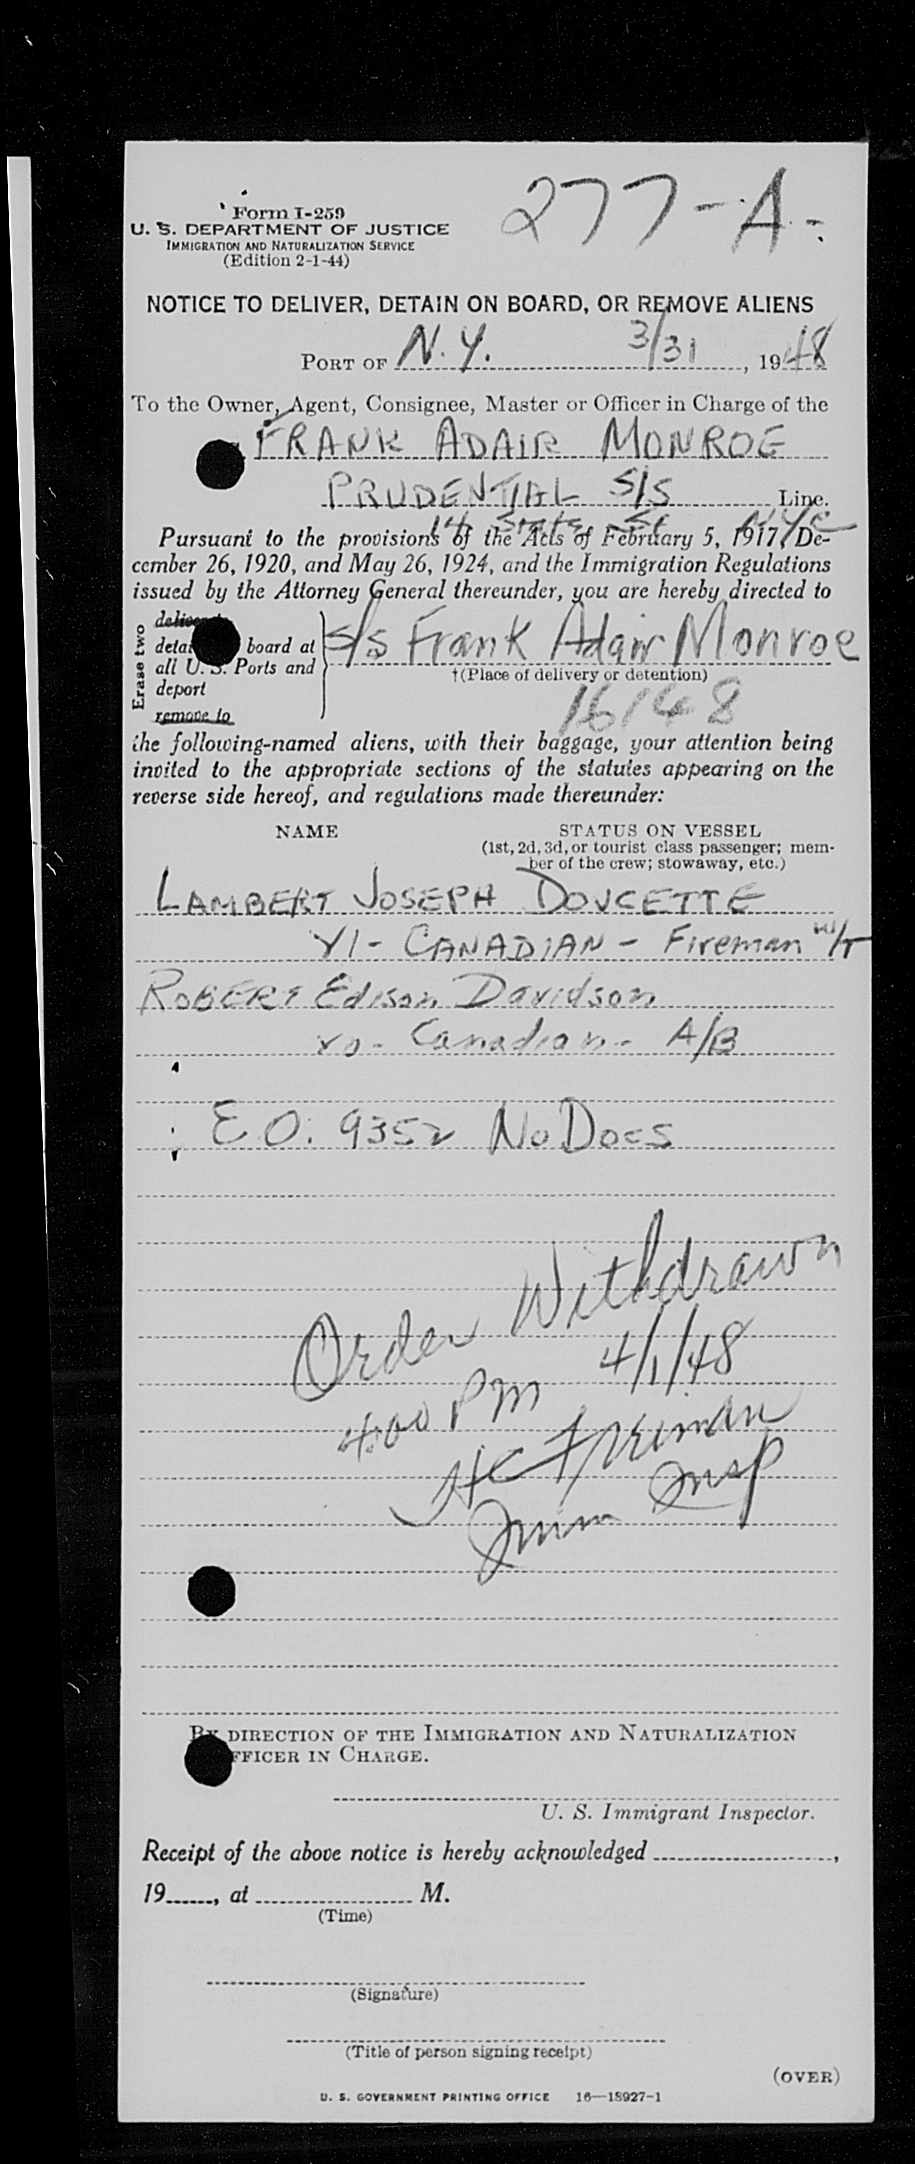 Form I-259
U. S. DEPARTMENT OF JUSTICE
IMMIGRATION AND NATURALIZATION SERVICE
(Edition 2-1-44)
277-A-
NOTICE TO DELIVER, DETAIN ON BOARD, OR REMOVE ALIENS
PORT OF N.Y. 3/31, 1948
To the Owner, Agent, Consignee, Master or Officer in Charge of the
FRANK ADAIR MONROE
PRUDENTIAL S/S Line.
14 State St N.Y.C
Pursuant to the provisions of the Acts of February 5, 1917, De-
cember 26, 1920, and May 26, 1924, and the Immigration Regulations
issued by the Attorney General thereunder, you are hereby directed to
Erase two
board at
all U. S. Ports and
deport
remove to
S/s Frank Adair Monroe
†(Place of delivery or detention)
16148
the following-named aliens, with their baggage, your attention being
invited to the appropriate sections of the statutes appearing on the
reverse side hereof, and regulations made thereunder:
NAME STATUS ON VESSEL
(1st, 2d, 3d, or tourist class passenger; mem-
ber of the crew; stowaway, etc.)
LAMBERT JOSEPH DOUCETTE
- CANADIAN - Fireman W/T
ROBERT Edison Davidson
- Canadian - A/B
E.O. 9352 No Docs
Order Withdrawn
400 PM 4/1/48
Imm Insp
BY DIRECTION OF THE IMMIGRATION AND NATURALIZATION
OFFICER IN CHARGE.
U. S. Immigrant Inspector.
Receipt of the above notice is hereby acknowledged ,
19 , at M.
(Time)
(Signature)
(Title of person signing receipt)
(OVER)
U. S. GOVERNMENT PRINTING OFFICE 16—18927-1